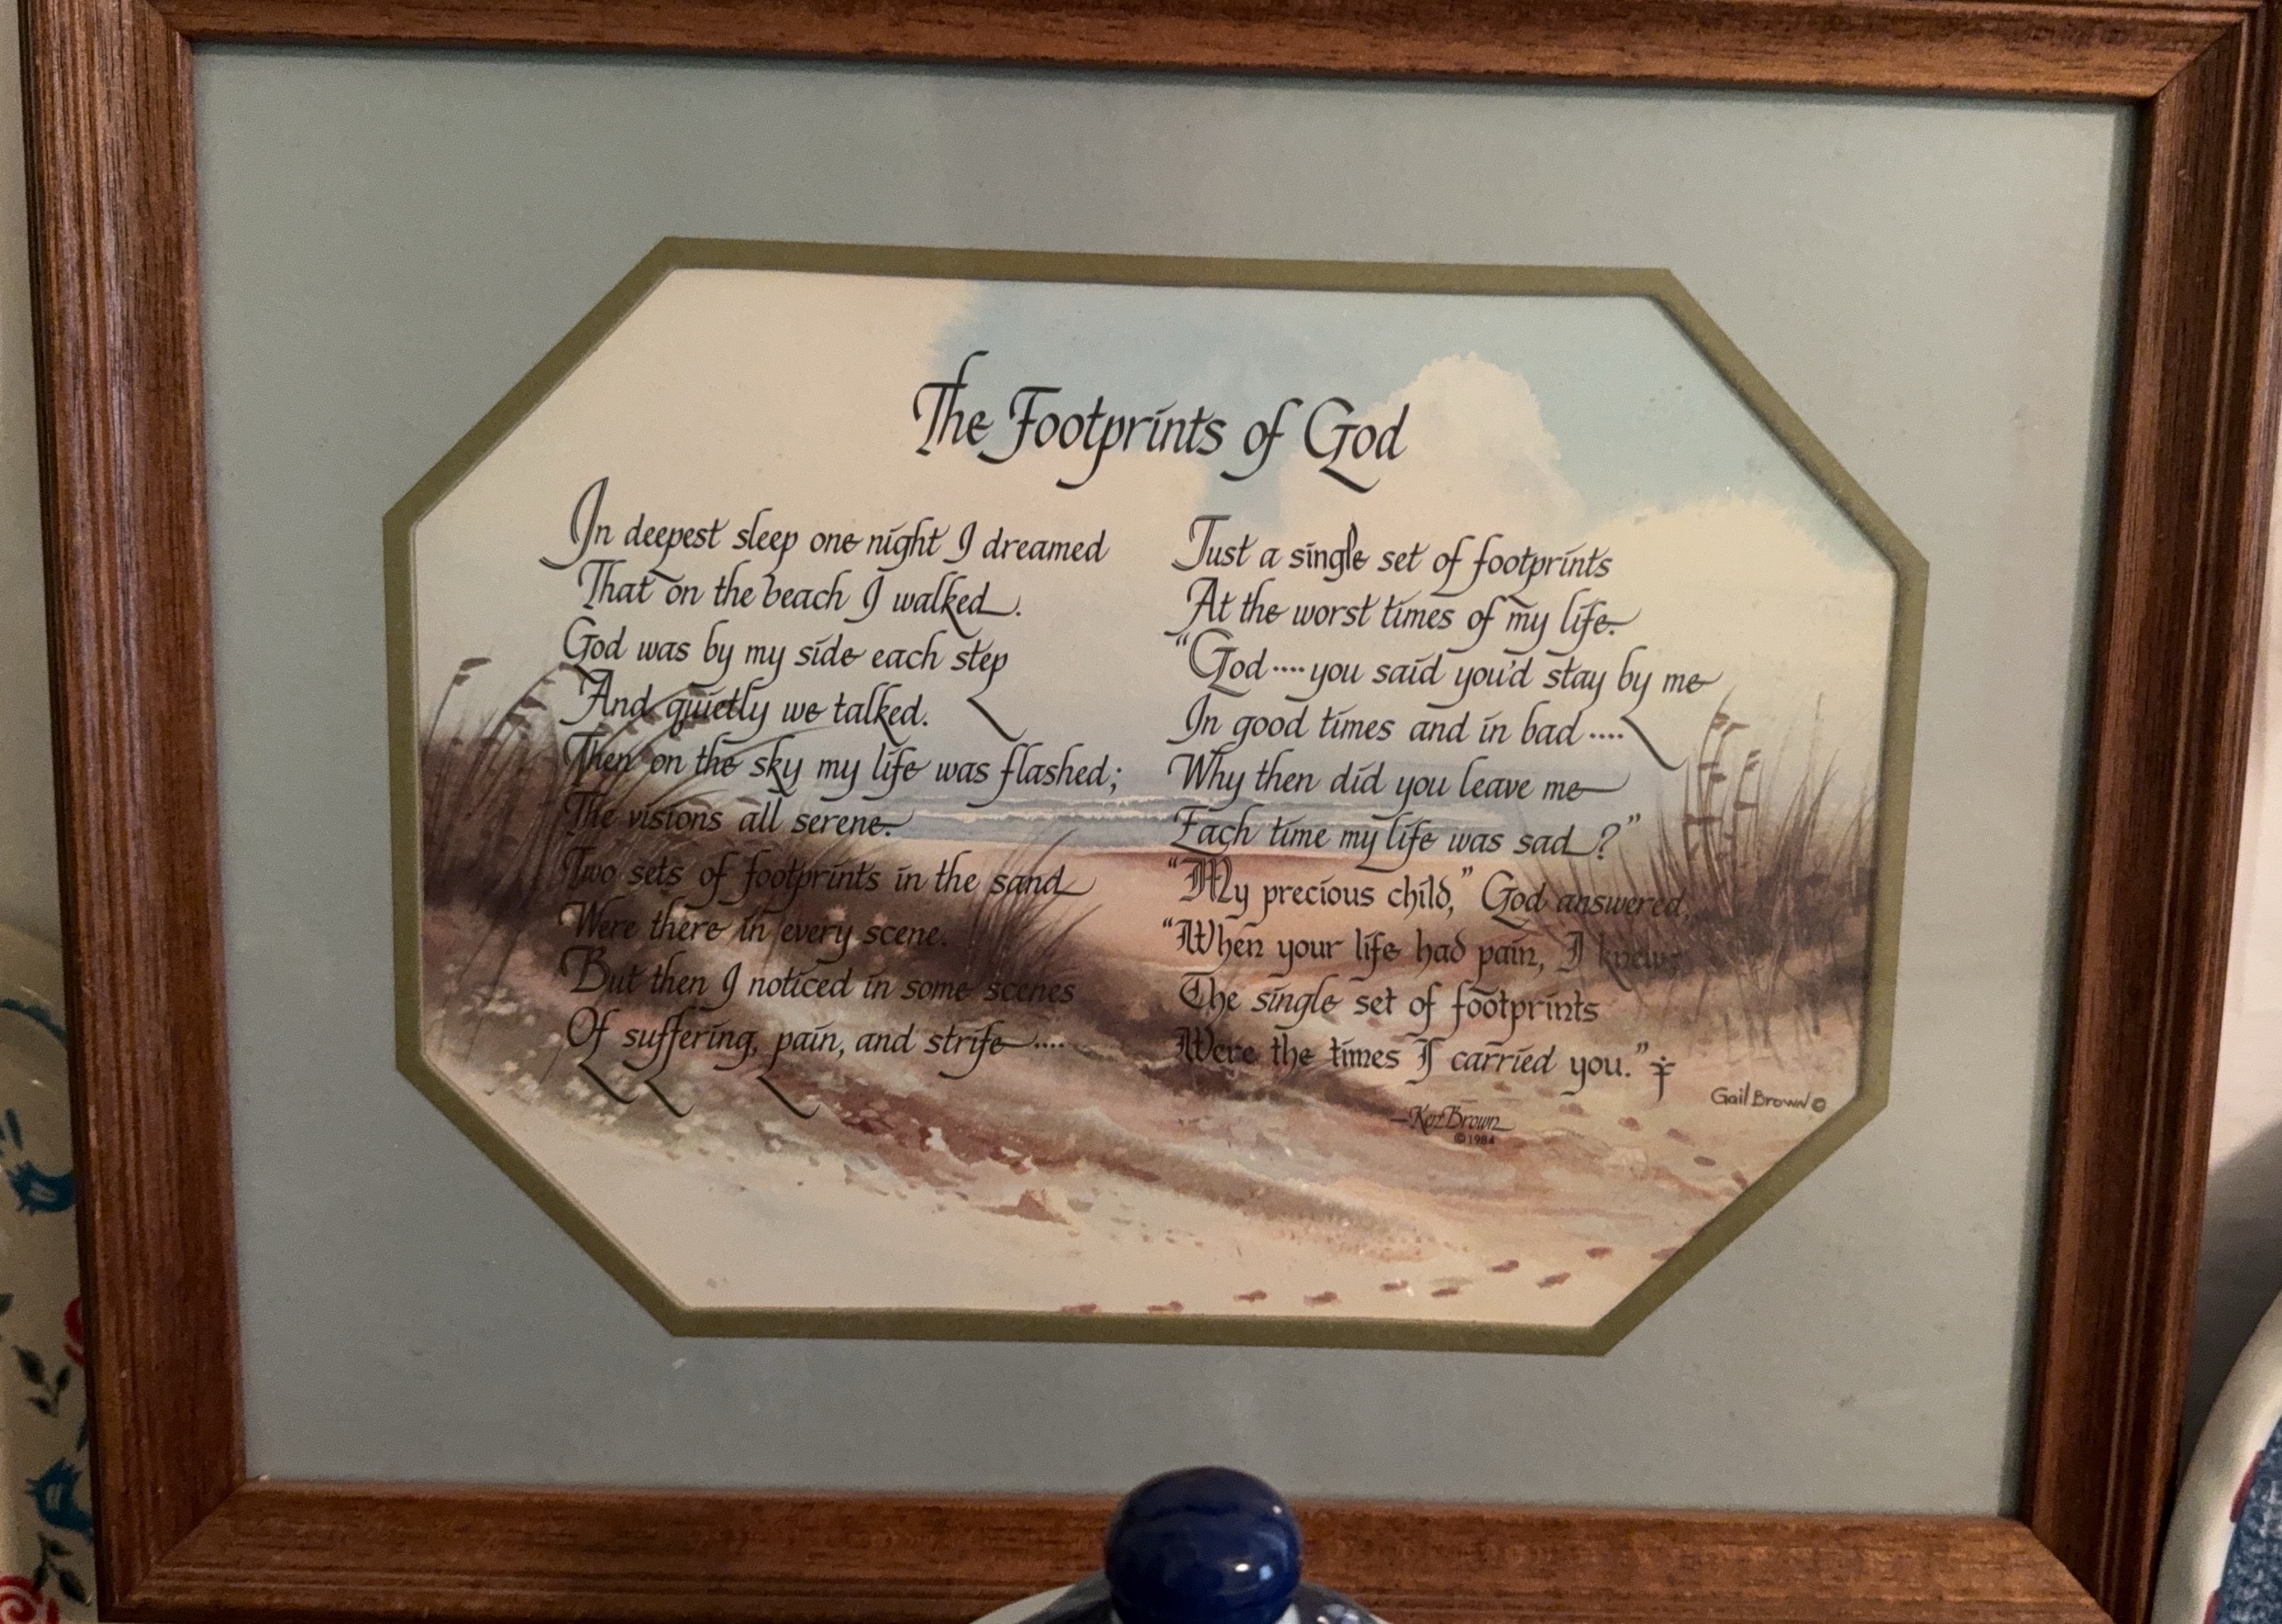 The Footprints of God
In deepest sleep one night I dreamed
That on the beach I walked.
God was by my side each step
And quietly we talked.
Then on the sky my life was flashed;
The visions all serene.
Two sets of footprints in the sand
Were there in every scene.
But then I noticed in some scenes
Of suffering, pain, and strife....
Just a single set of footprints
At the worst times of my life.
"God....you said you'd stay by me
In good times and in bad....
Why then did you leave me
Each time my life was sad?"
"My precious child," God answered,
"When your life had pain, I knew
The single set of footprints
Were the times I carried you."
—Ken Brown
©1984
Gail Brown ©